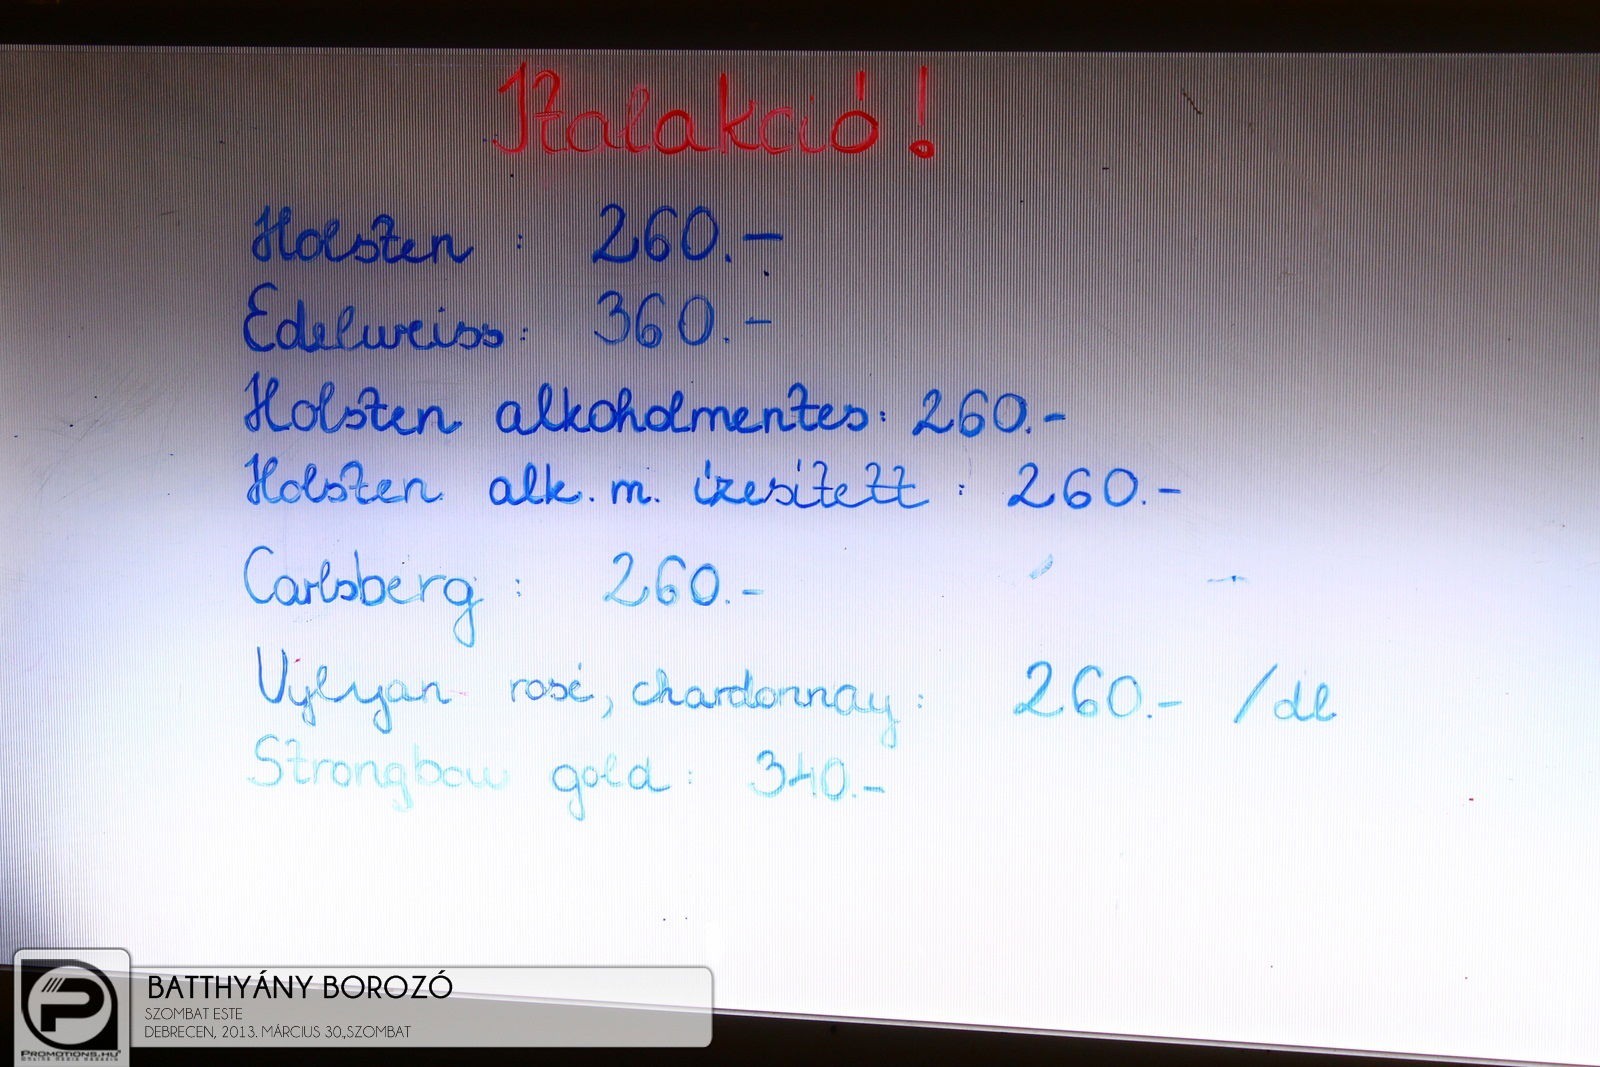 Italakció!
Holsten : 260.-
Edelweiss: 360.-
Holsten alkoholmentes: 260.-
Holsten alk. m. ízesített : 260.-
Carlsberg : 260.-
Vylyan rosé, chardonnay: 260.- /dl
Strongbow gold: 340.-
BATTHYÁNY BOROZÓ
SZOMBAT ESTE
DEBRECEN, 2013. MÁRCIUS 30.,SZOMBAT
PROMOTIONS.HU
ONLINE MEDIA MAGAZIN